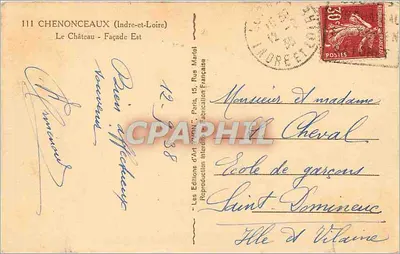 111 CHENONCEAUX (Indre-et-Loire)
Le Château - Façade Est
Bien affectueux
souvenir
12-9-38
Les Editions d'Art Paris, 15, Rue Martel
Reproduction Fabrication Française
INDRE ET LOIRE
30c
POSTES
Monsieur et madame
Cheval
Ecole de garçons
Saint-Domineuc
Ille et Vilaine
DELCAMPE